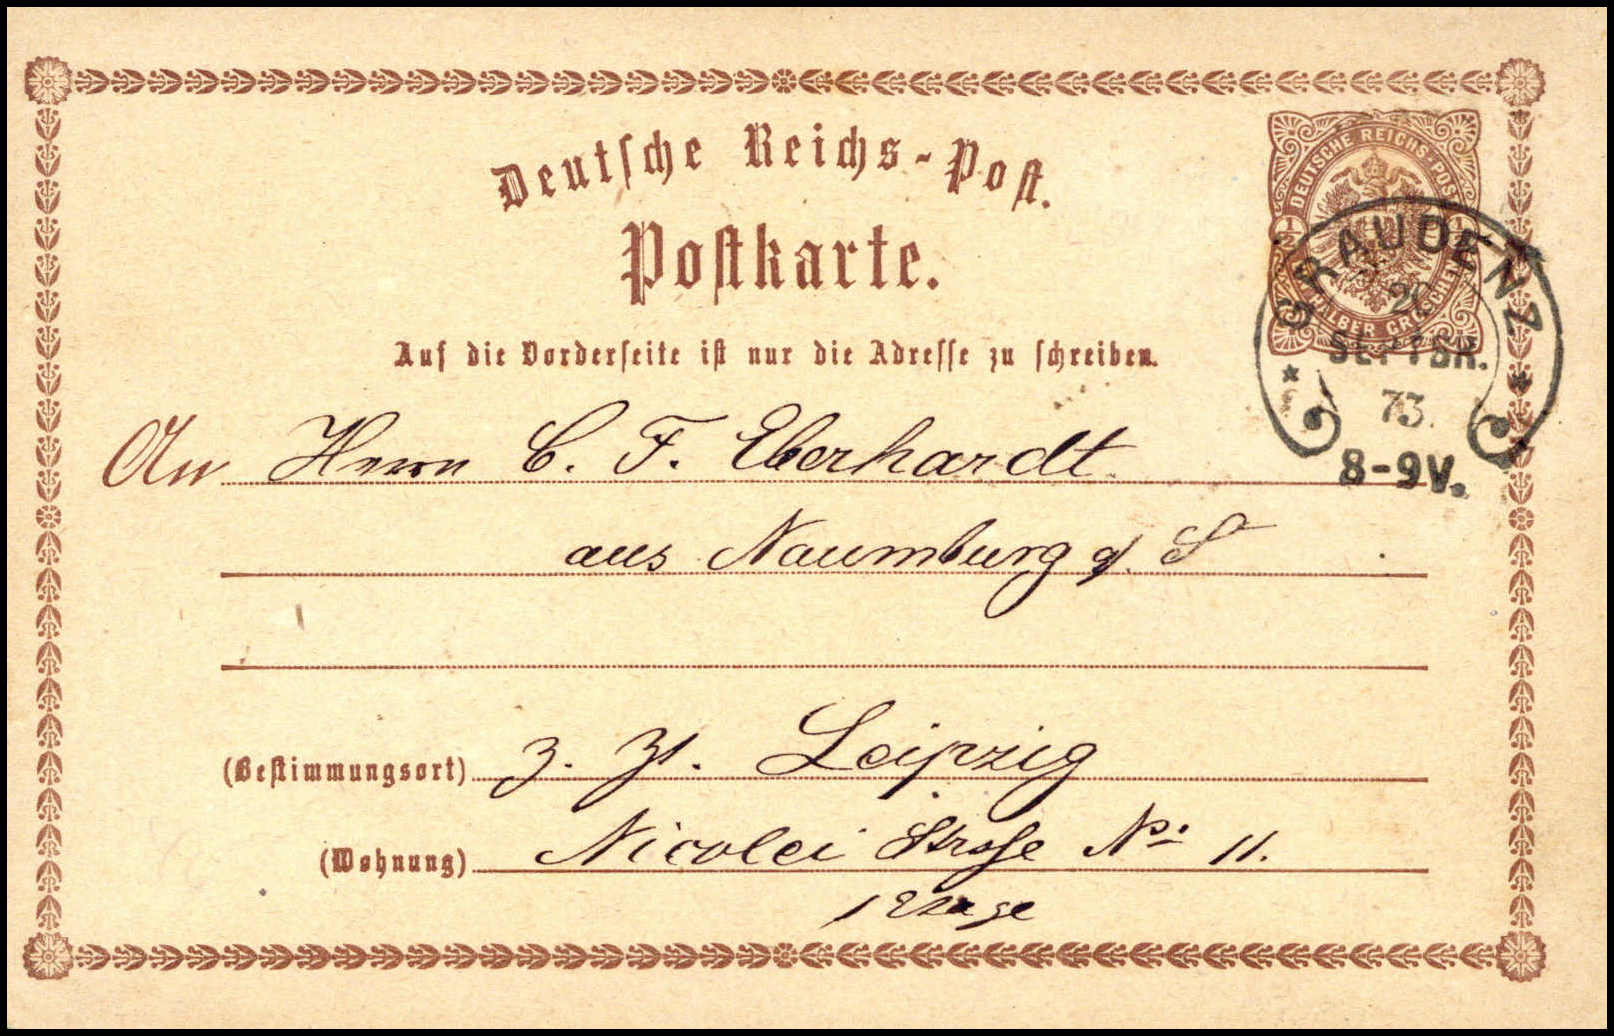 Deutsche Reichs-Post.
Postkarte.
Auf die Vorderseite ist nur die Adresse zu schreiben.
DEUTSCHE REICHS-POST
1/2 1/2
HALBER GROSCHEN
GRAUDENZ
20
SEPTBR.
73.
8-9V.
An Herrn C. F. Eberhardt
aus Naumburg a/. S
(Bestimmungsort) z. Zt. Leipzig
(Wohnung) Nicolei Strasse No. 11.
1 Etage